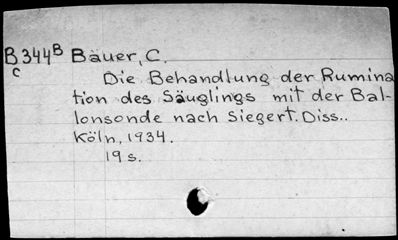 B344B Bäuer, C.
C
Die Behandlung der Rumina
tion des Säuglings mit der Bal-
lonsonde nach Siegert. Diss..
Köln, 1934.
19 s.